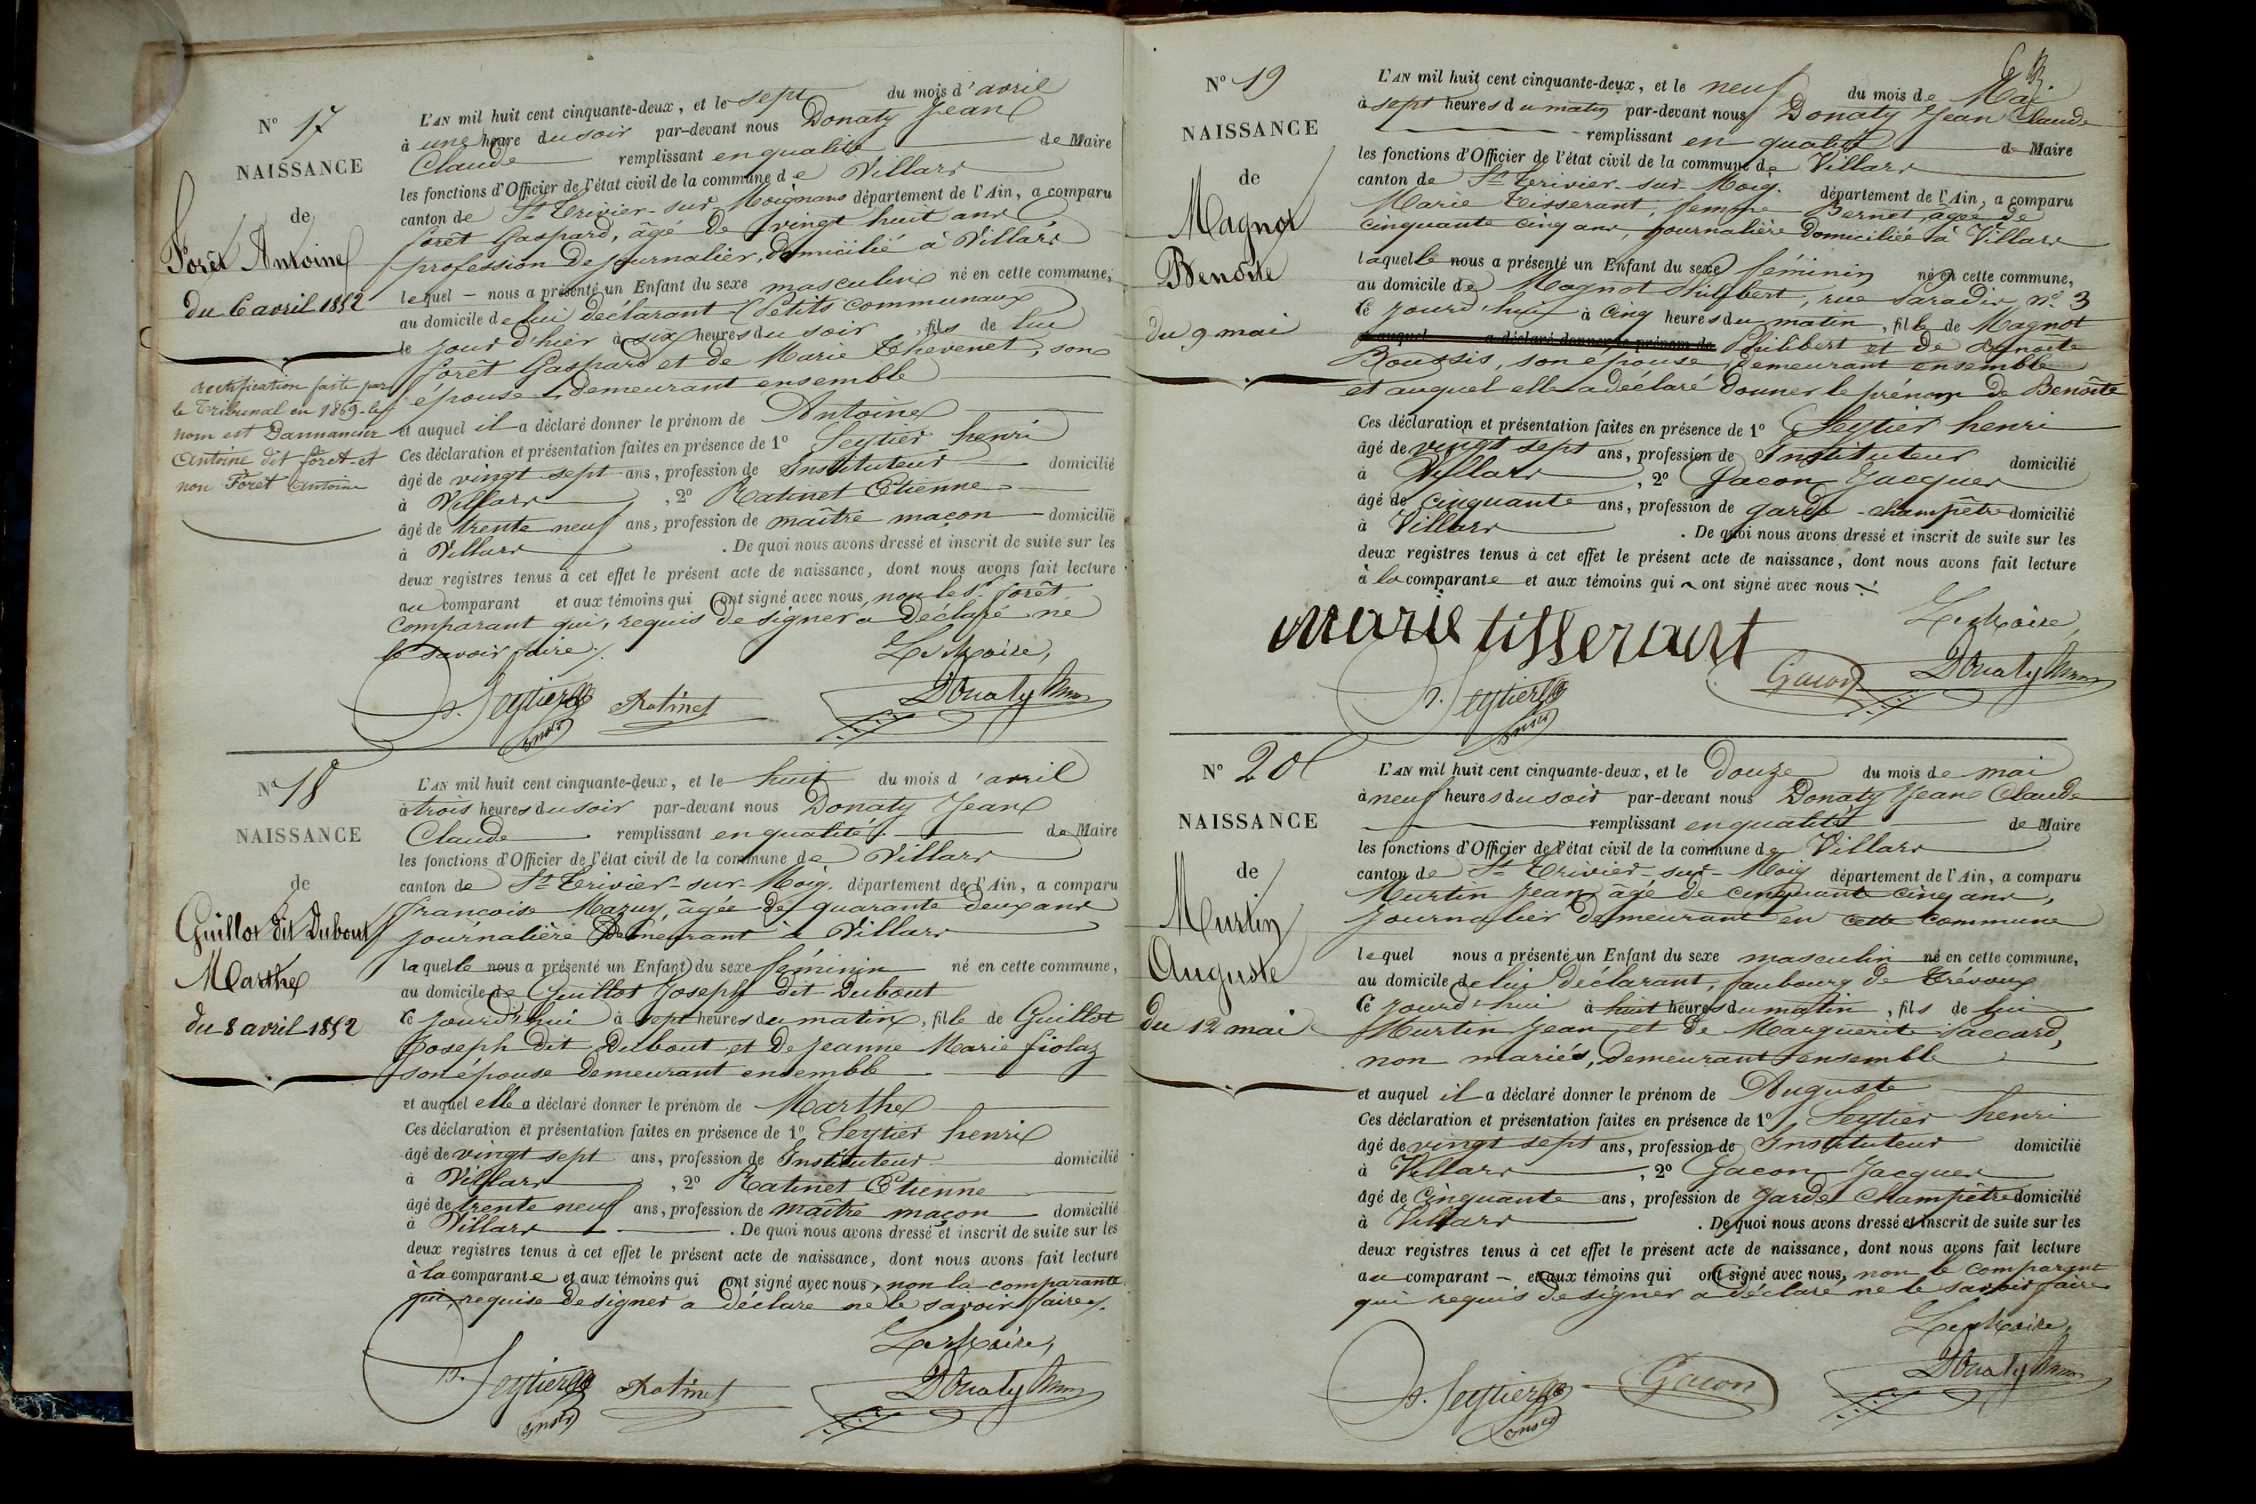 N° 17
NAISSANCE
de
Forêt Antoine
du 6 avril 1852
rectification faite par
le Tribunal en 1869 - le
nom est Dannancier
Antoine dit forêt et
non Forêt Antoine
L'AN mil huit cent cinquante-deux, et le sept du mois d'avril
à une heure du soir par-devant nous Donaty Jean
Claude remplissant en qualité de Maire
les fonctions d'Officier de l'état civil de la commune de Villars
canton de St Trivier-sur-Moignans département de l'Ain, a comparu
forêt Gaspard, âgé de vingt huit ans
profession de journalier, domicilié à Villars
lequel — nous a présenté un Enfant du sexe masculin né en cette commune,
au domicile de lui déclarant (Petits communaux)
le jour d'hier à six heures du soir, fils de lui
forêt Gaspard et de Marie Thevenet, son
épouse demeurant ensemble
et auquel il a déclaré donner le prénom de Antoine
Ces déclaration et présentation faites en présence de 1° Seytier henri
âgé de vingt sept ans, profession de Instituteur domicilié
à Villars, 2° Ratinet Etienne
âgé de trente neuf ans, profession de maître maçon domicilié
à Villars. De quoi nous avons dressé et inscrit de suite sur les
deux registres tenus à cet effet le présent acte de naissance, dont nous avons fait lecture
au comparant et aux témoins qui ont signé avec nous, non le sr forêt
comparant qui, requis de signer a déclaré ne
le savoir faire.
Le Maire,
Seytier Ratinet Donaty
N° 18
NAISSANCE
de
Guillot dit Dubout
Marthe
du 8 avril 1852
L'AN mil huit cent cinquante-deux, et le huit du mois d'avril
à trois heures du soir par-devant nous Donaty Jean
Claude remplissant en qualité de Maire
les fonctions d'Officier de l'état civil de la commune de Villars
canton de St Trivier-sur-Moig. département de l'Ain, a comparu
francoise Mazuy, âgée de quarante deux ans
journalière demeurant à Villars
laquelle nous a présenté un Enfant du sexe féminin né en cette commune,
au domicile de Guillot Joseph dit Dubout
ce jourd'hui à sept heures du matin, fille de Guillot
Joseph dit Dubout et de jeanne Marie fiolaz
son épouse demeurant ensemble
et auquel elle a déclaré donner le prénom de Marthe
Ces déclaration et présentation faites en présence de 1° Seytier henri
âgé de vingt sept ans, profession de Instituteur domicilié
à Villars, 2° Ratinet Etienne
âgé de trente neuf ans, profession de maître maçon domicilié
à Villars. De quoi nous avons dressé et inscrit de suite sur les
deux registres tenus à cet effet le présent acte de naissance, dont nous avons fait lecture
à la comparante et aux témoins qui ont signé avec nous, non la comparante
qui, requise de signer a déclaré ne le savoir faire.
Le Maire,
Seytier Ratinet Donaty
N° 19
NAISSANCE
de
Magnot
Benoîte
du 9 mai
L'AN mil huit cent cinquante-deux, et le neuf du mois de Mai
à sept heures du matin par-devant nous Donaty Jean Claude
remplissant en qualité de Maire
les fonctions d'Officier de l'état civil de la commune de Villars
canton de St Trivier-sur-Moig. département de l'Ain, a comparu
Marie Tisserant, femme Bernet, âgée de
cinquante cinq ans, journalière domiciliée à Villars
laquelle nous a présenté un Enfant du sexe féminin né en cette commune,
au domicile de Magnot Philibert, rue Paradis, n° 3
ce jourd'hui à cinq heures du matin, fille de Magnot
Philibert et de Benoîte
Boussis, son épouse, demeurant ensemble
et auquel elle a déclaré donner le prénom de Benoîte
Ces déclaration et présentation faites en présence de 1° Seytier henri
âgé de vingt sept ans, profession de Instituteur domicilié
à Villars, 2° Gacon Jacques
âgé de cinquante ans, profession de garde-champêtre domicilié
à Villars. De quoi nous avons dressé et inscrit de suite sur les
deux registres tenus à cet effet le présent acte de naissance, dont nous avons fait lecture
à la comparante et aux témoins qui ont signé avec nous
Le Maire,
marie tisserant
Seytier Gacon Donaty
N° 20
NAISSANCE
de
Murtin
Auguste
du 12 mai
L'AN mil huit cent cinquante-deux, et le douze du mois de mai
à neuf heures du soir par-devant nous Donaty Jean Claude
remplissant en qualité de Maire
les fonctions d'Officier de l'état civil de la commune de Villars
canton de St Trivier-sur-Moig département de l'Ain, a comparu
Murtin Jean âgé de cinquante cinq ans,
journalier demeurant en cette commune
lequel nous a présenté un Enfant du sexe masculin né en cette commune,
au domicile de lui déclarant, faubourg de Trévoux
ce jourd'hui à huit heures du matin, fils de lui
Murtin Jean et de Marguerite Jaccard,
non mariés, demeurant ensemble
et auquel il a déclaré donner le prénom de Auguste
Ces déclaration et présentation faites en présence de 1° Seytier henri
âgé de vingt sept ans, profession de Instituteur domicilié
à Villars, 2° Gacon Jacques
âgé de cinquante ans, profession de garde Champêtre domicilié
à Villars. De quoi nous avons dressé et inscrit de suite sur les
deux registres tenus à cet effet le présent acte de naissance, dont nous avons fait lecture
au comparant — et aux témoins qui ont signé avec nous, non le comparant
qui requis de signer a déclaré ne le savoir faire
Le Maire,
Seytier Gacon Donaty